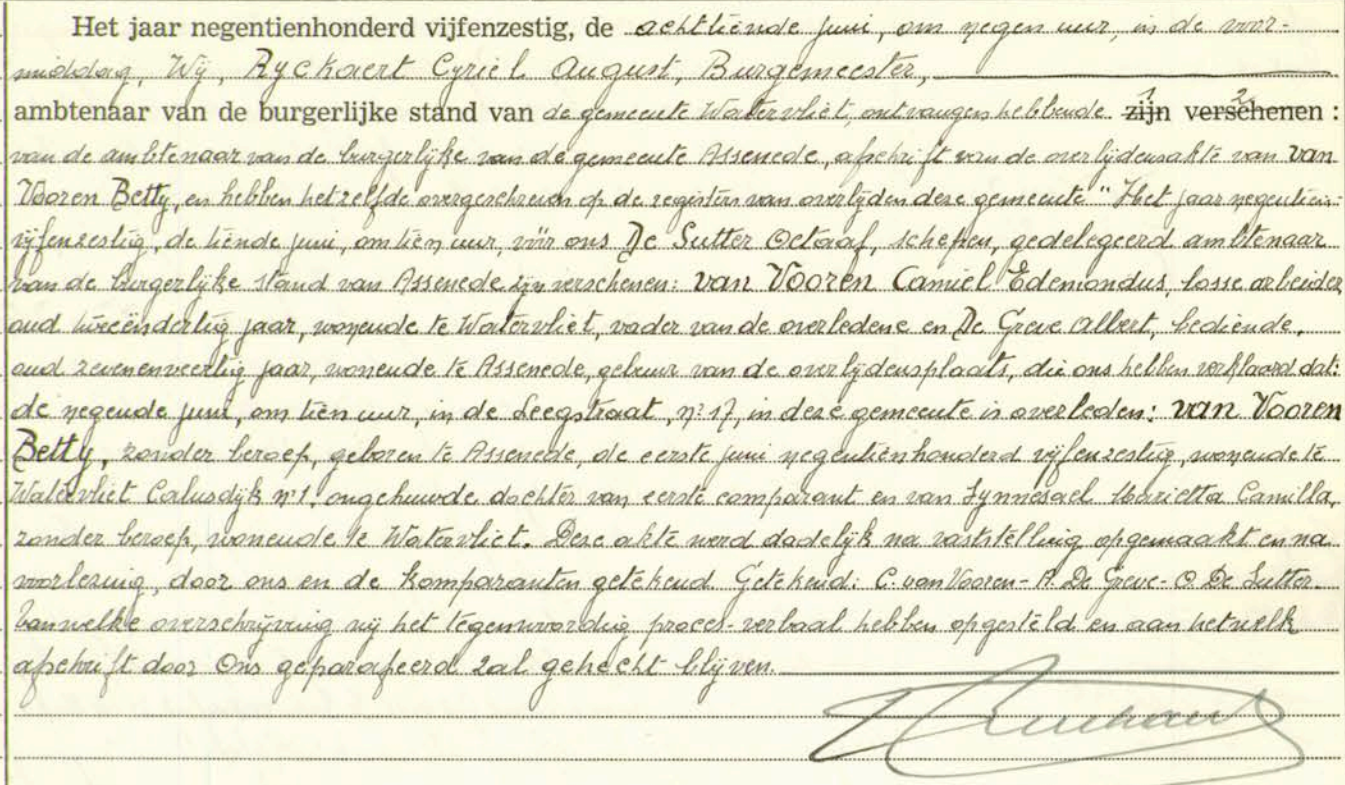 Het jaar negentienhonderd vijfenzestig, de achttiende juni, om negen uur, in de voor-
middag, Wij, Ryckaert Cyriel August, Burgemeester,
ambtenaar van de burgerlijke stand van de gemeente Watervliet, ontvangen hebbende zijn verschenen :
van de ambtenaar van de burgerlijke van de gemeente Assenede, afschrift van de overlijdensakte van van
Vooren Betty, en hebben hetzelfde overgeschreven op de registers van overlijden deze gemeente "Het jaar negentien-
vijfenzestig, de tiende juni, om tien uur, vóór ons De Sutter Octaaf, schepen, gedelegeerd ambtenaar
van de burgerlijke stand van Assenede zijn verschenen: van Vooren Camiel Edemondus, losse arbeider
oud tweeëndertig jaar, wonende te Watervliet, vader van de overledene en De Greve Albert, bediende,
oud zevenenveertig jaar, wonende te Assenede, gebuur van de overlijdensplaats, die ons hebben verklaard dat:
de negende juni, om tien uur, in de Leegstraat, nr 17, in deze gemeente is overleden: van Vooren
Betty, zonder beroep, geboren te Assenede, de eerste juni negentienhonderd vijfenzestig, wonende te
Watervliet Calusdijk nr 1. ongehuwde dochter van eerste comparant en van Lynnesael Marietta Camilla,
zonder beroep, wonende te Watervliet. Deze akte werd dadelijk na vaststelling opgemaakt en na
voorlezing, door ons en de komparanten getekend Getekend: C. van Vooren - A. De Greve - O. De Sutter.
Van welke overschrijving wij het tegenwoordig proces-verbaal hebben opgesteld en aan hetwelk
afschrift door Ons geparafeerd zal gehecht blijven.